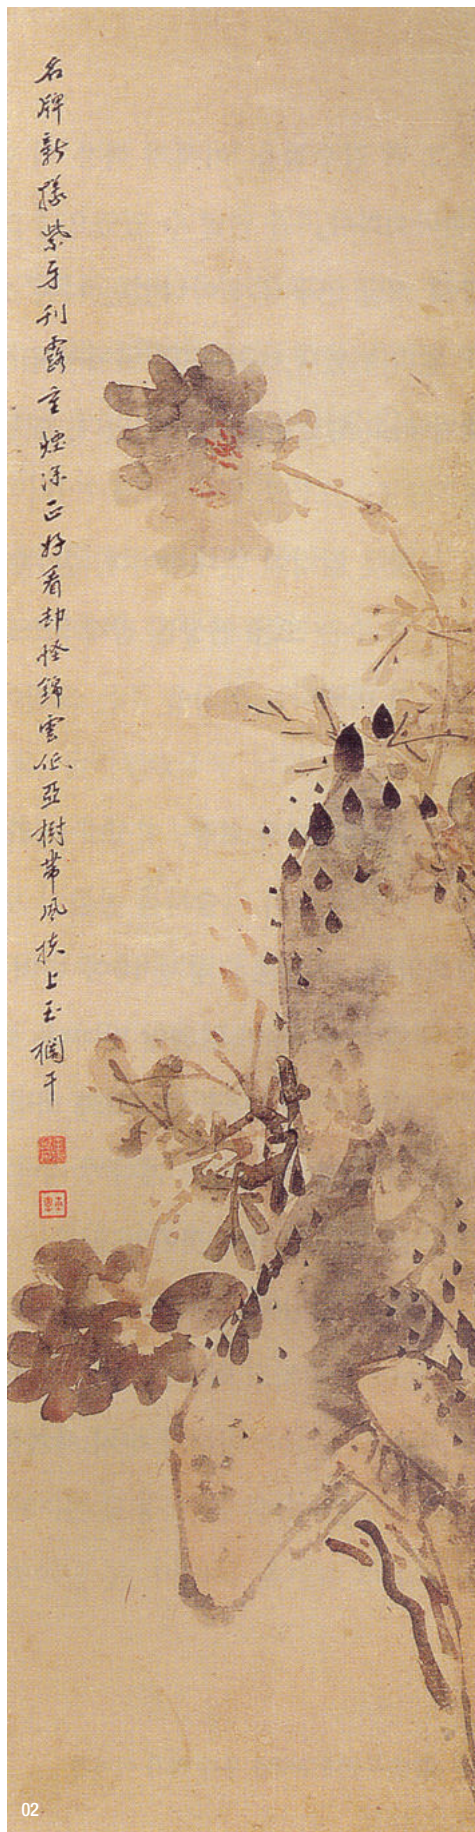 名牌新樣紫牙刊露重煙深正好看却怪錦雲低亞樹帶風扶上玉欄干
02